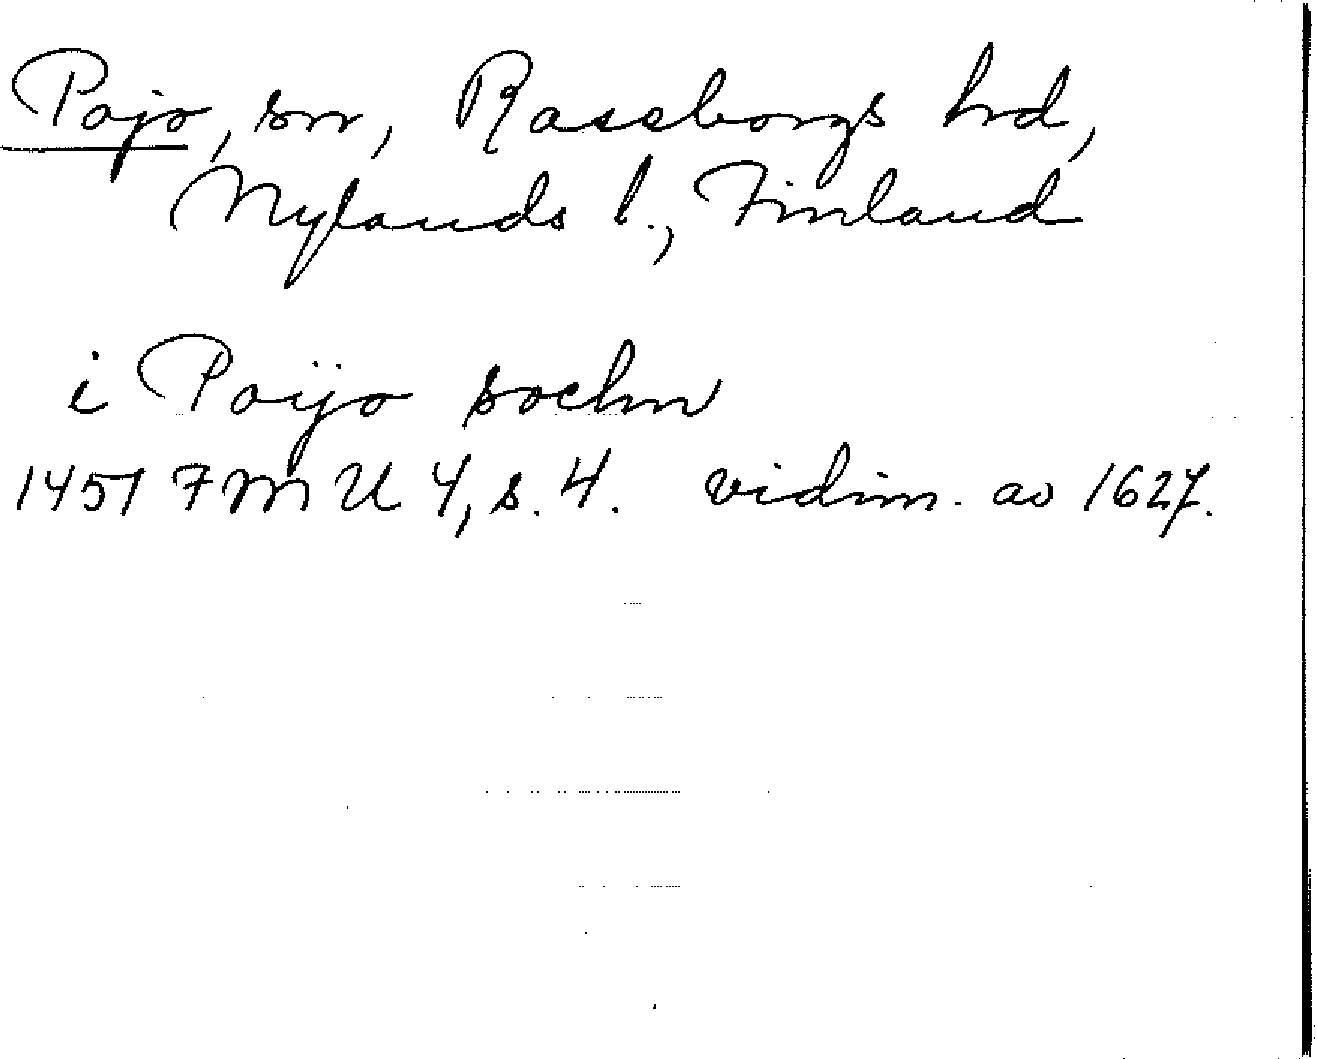 Pojo, sn, Raseborgs hd,
Nylands l., Finland
i Poÿo sochn
1451 FMU 4, s. 4. vidim. av 1627.